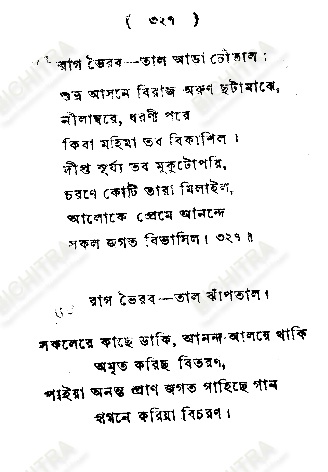 ( ৩২৭ )
রাগ ভৈরব—তাল আড়া চৌতাল।
শুভ্র আসনে বিরাজ অরুণ ছটামাঝে,
নীলাম্বরে, ধরণী পরে
কিবা মহিমা তব বিকাশিল।
দীপ্ত সূর্য্য তব মুকুটোপরি,
চরণে কোটি তারা মিলাইল,
আলোকে প্রেমে আনন্দে
সকল জগত বিভাসিল। ৩২৭॥
রাগ ভৈরব—তাল ঝাঁপতাল।
সকলেরে কাছে ডাকি, আনন্দ-আলয়ে থাকি
অমৃত করিছ বিতরণ,
পাইয়া অনন্ত প্রাণ জগত গাহিছে গান
গগনে করিয়া বিচরণ।
BICHITRA